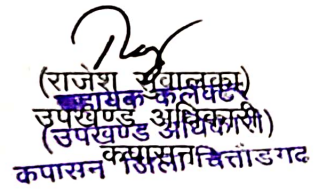 (राजेश सुवालका)
सहायक कलेक्टर
उपखण्ड अधिकारी
(उपखण्ड अधिकारी)
कपासन
कपासन जिला चित्तौडगढ